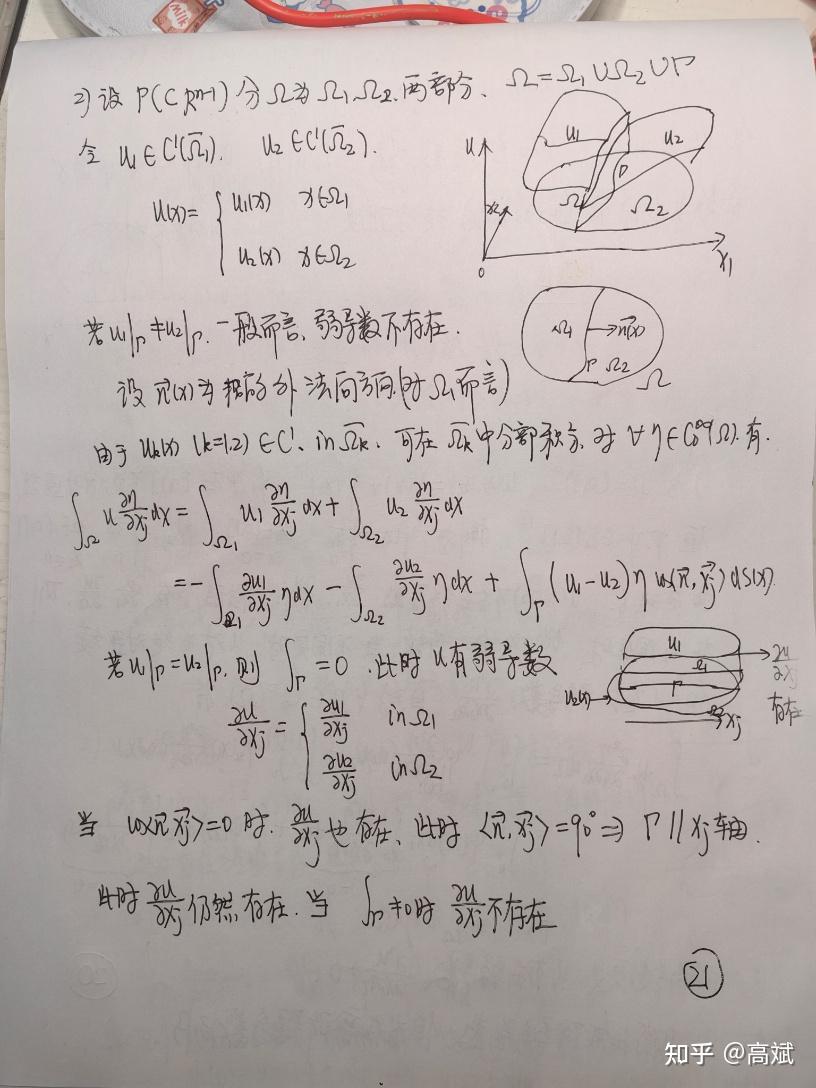 2) 设 Γ(⊂R^{n-1}) 分Ω为Ω₁,Ω₂, 两部分、 Ω=Ω₁∪Ω₂∪Γ
令 u₁∈C¹(Ω̄₁). u₂∈C¹(Ω̄₂).
u(x)= { u₁(x) x∈Ω₁
u₂(x) x∈Ω₂
u
u₁
u₂
Γ
Ω₁
Ω₂
x₂
0
x₁
若 u₁|Γ≠u₂|Γ. 一般而言、弱导数不存在.
Ω₁
n⃗(x)
Γ Ω₂
Ω
设 n⃗(x)为 外法向方向.(对Ω₁而言)
由于 uₖ(x) (k=1,2) ∈C¹. in Ω̄ₖ. 可在 Ω̄ₖ中分部积分. 对 ∀η∈C₀^∞(Ω). 有.
∫_Ω u ∂η/∂xⱼ dx = ∫_Ω₁ u₁ ∂η/∂xⱼ dx + ∫_Ω₂ u₂ ∂η/∂xⱼ dx
= -∫_Ω₁ ∂u₁/∂xⱼ η dx - ∫_Ω₂ ∂u₂/∂xⱼ η dx + ∫_Γ (u₁-u₂) η cos(n⃗, x⃗ⱼ) dS(x).
若 u₁|Γ=u₂|Γ, 则 ∫_Γ =0 . 此时 u有弱导数
∂u/∂xⱼ = { ∂u₁/∂xⱼ in Ω₁
∂u₂/∂xⱼ in Ω₂
u₁
Ω₁
Γ
u₂(x)
Ω₂
xⱼ
∂u/∂xⱼ
存在
当 cos<n⃗,x⃗ⱼ>=0 时. ∂u/∂xⱼ 也存在、此时 <n⃗,x⃗ⱼ>=90°⇒ Γ∥xⱼ轴.
此时 ∂u/∂xⱼ 仍然存在. 当 ∫_Γ≠0时 ∂u/∂xⱼ 不存在
21
知乎 @高斌